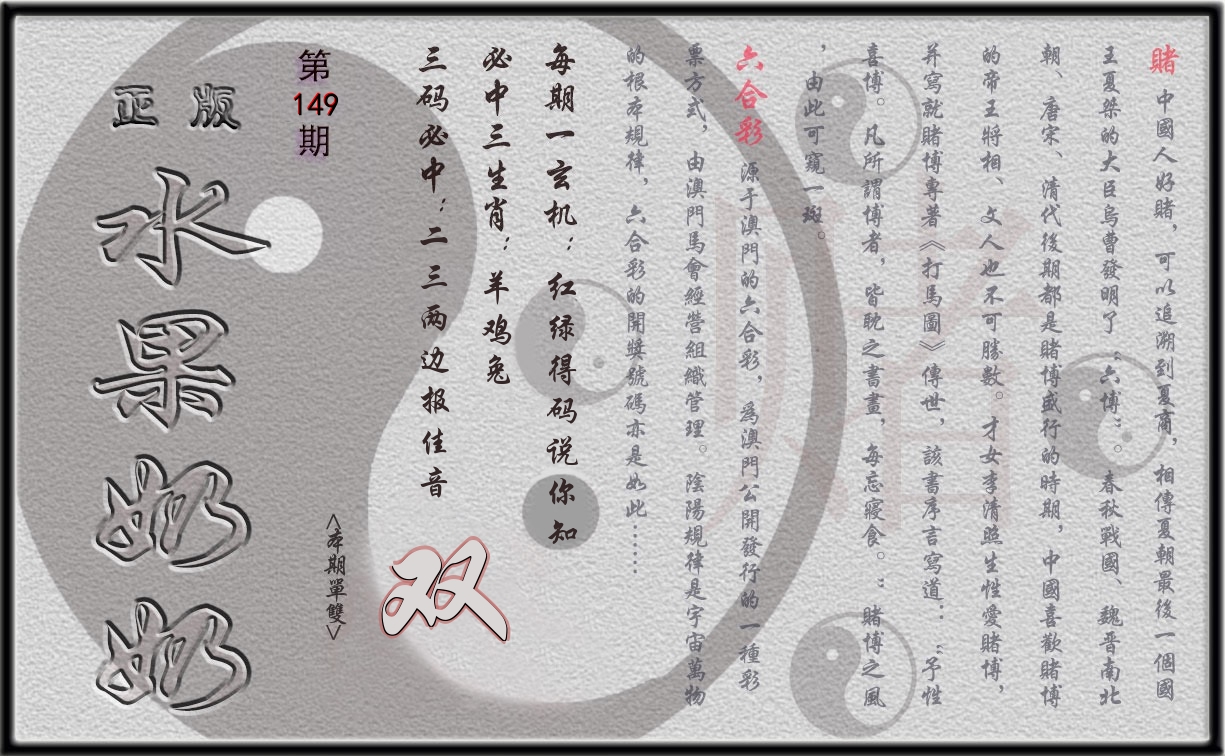 賭 中國人好賭，可以追溯到夏商，相傳夏朝最後一個國
王夏桀的大臣烏曹發明了“六博”。春秋戰國、魏晋南北
朝、唐宋、清代後期都是賭博盛行的時期，中國喜歡賭博
的帝王將相、文人也不可勝數。才女李清照生性愛賭博，
并寫就賭博專著《打馬圖》傳世，該書序言寫道：“予性
喜博。凡所謂博者，皆耽之書畫，每忘寢食。：賭博之風
，由此可窺一斑。
六合彩 源于澳門的六合彩，爲澳門公開發行的一種彩
票方式，由澳門馬會經營組織管理。陰陽規律是宇宙萬物
的根本規律，六合彩的開獎號碼亦是如此……
每期一玄机：红绿得码说你知
必中三生肖：羊鸡兔
三码必中：二三两边报佳音
双
<本期單雙>
第
149
期
正版
水果奶奶
賭